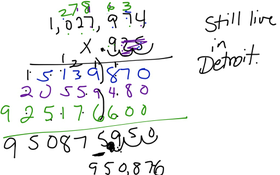 278 63
1,027,994
x .925
12
15139870
2055 9480
925176600
950875950
950,876
Still live
in
Detroit.